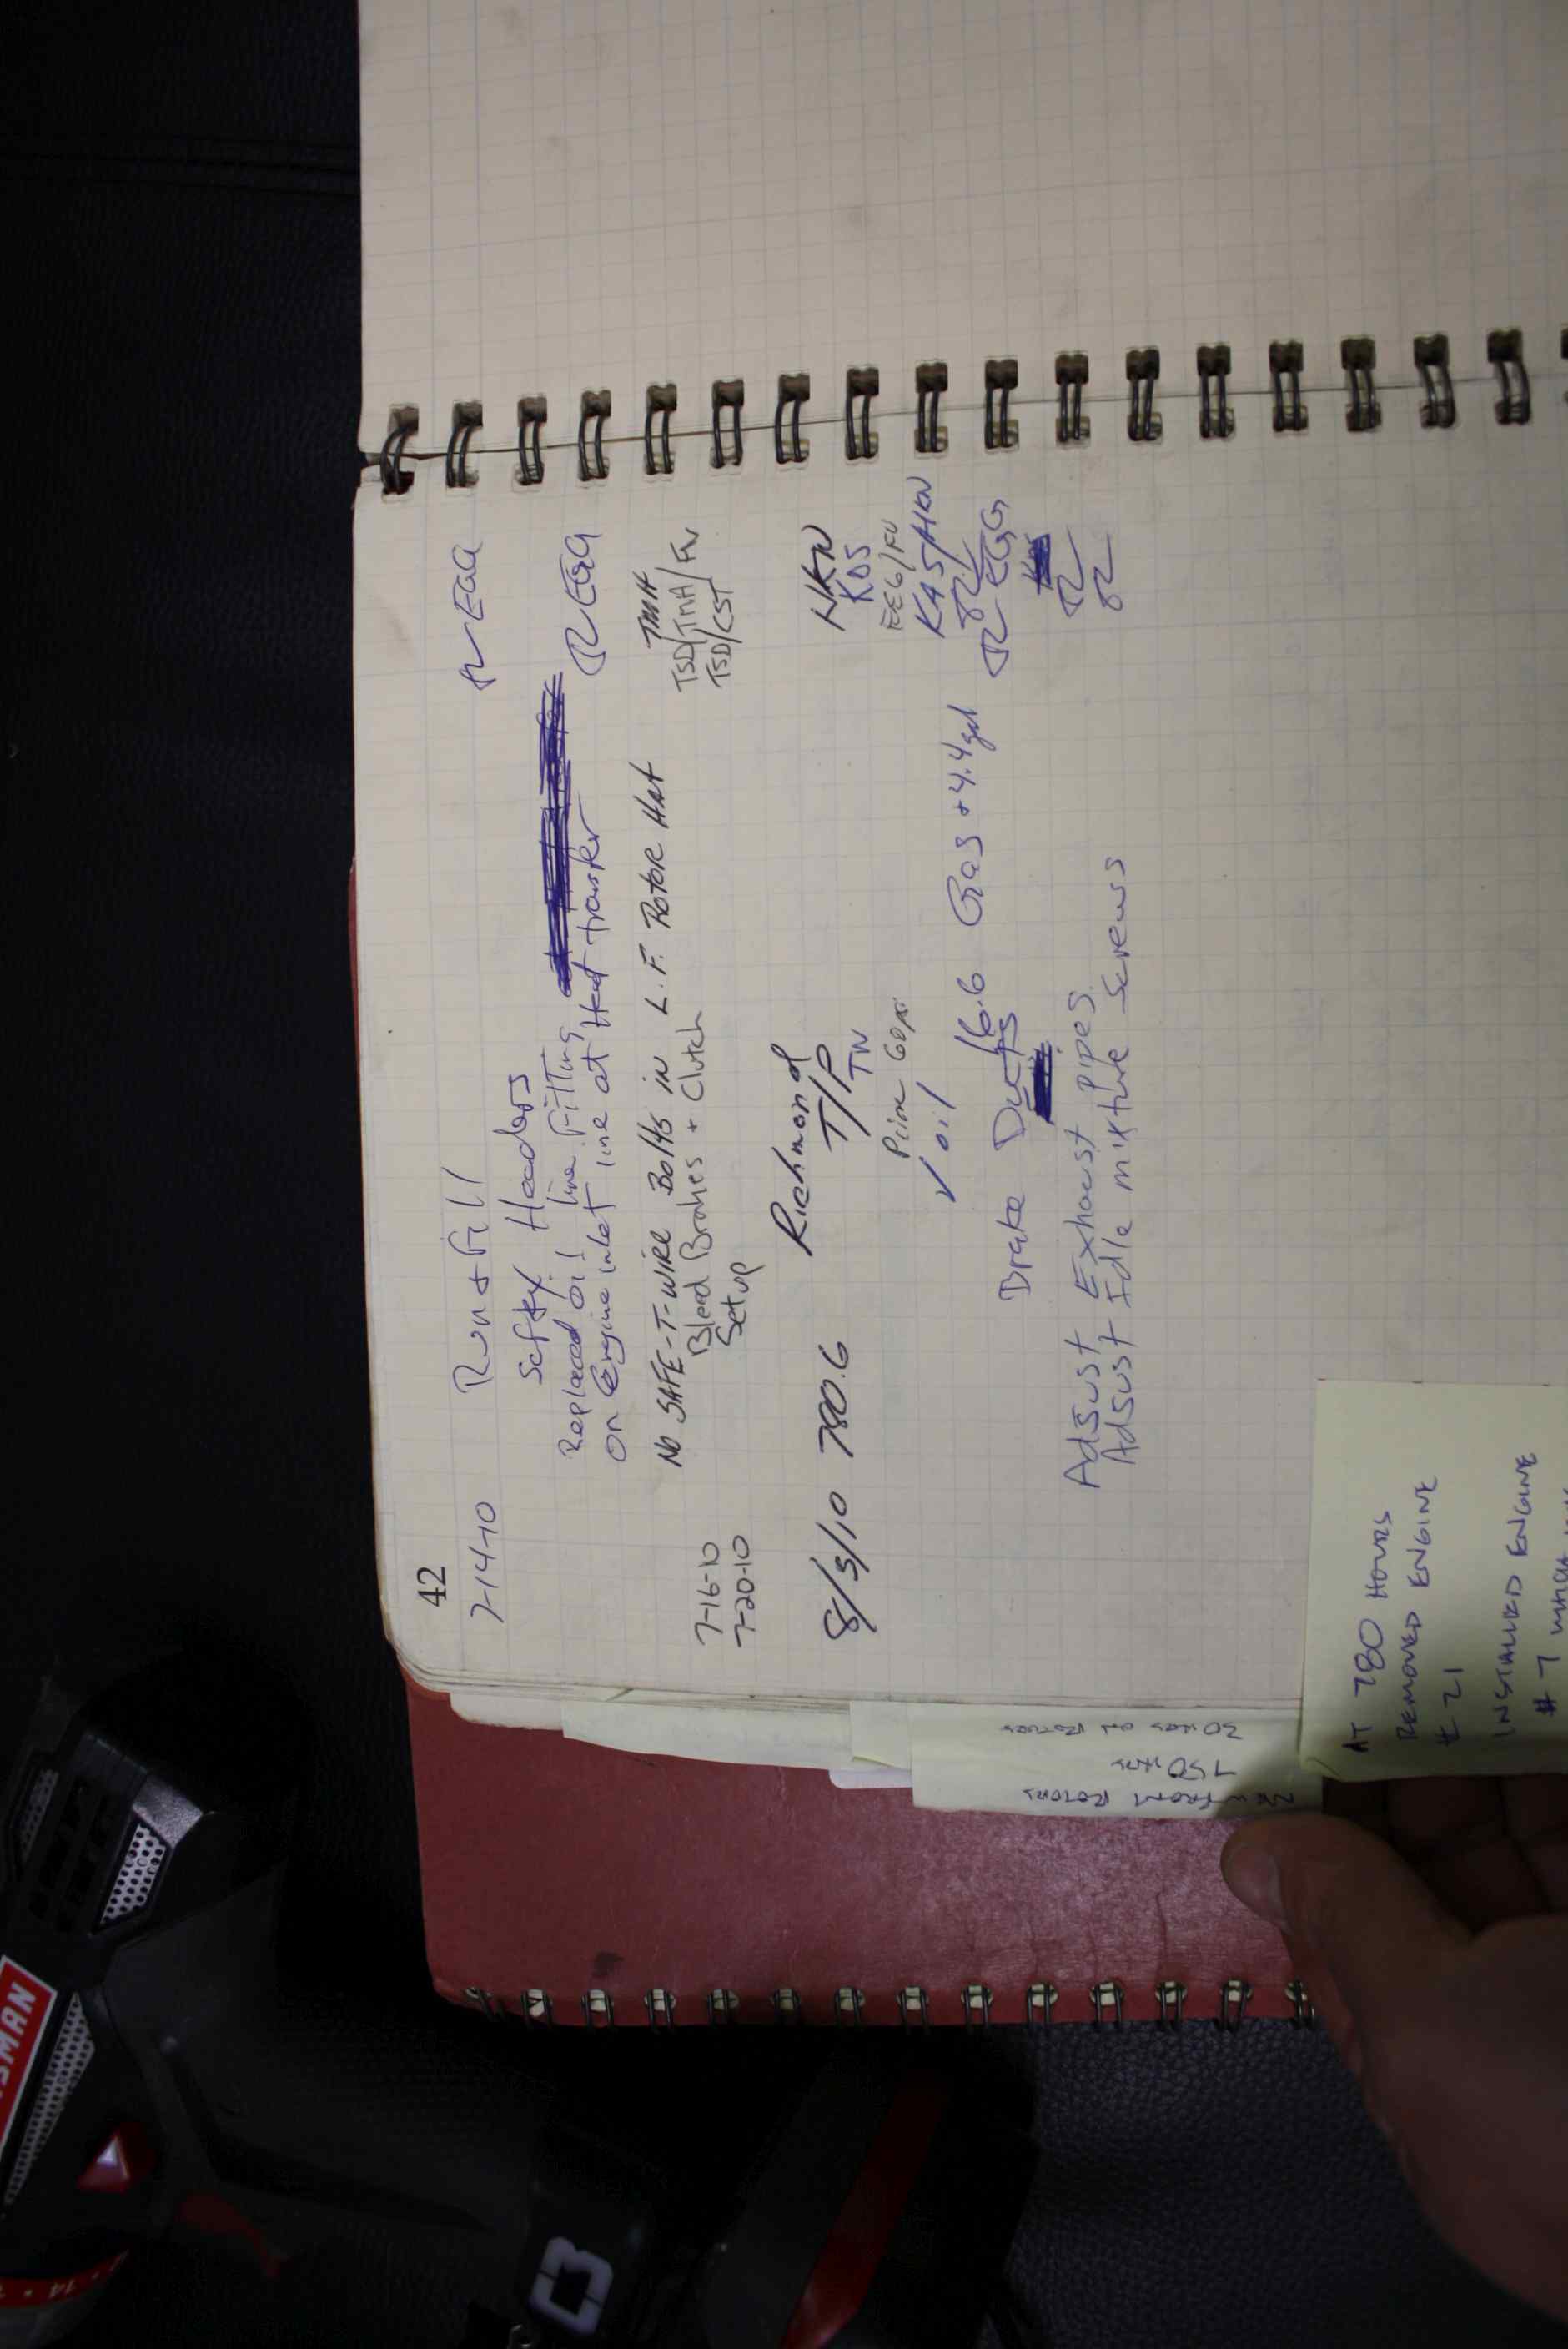 42
7-14-10 Run + Fill EGG
Safty Headers
Replaced oil line Fitting
on Engine inlet line at Heat transfer EGG
No SAFE-T-WIRE Bolts in L.F. Rotor Hat TMH
7-16-10 Bleed Brakes + Clutch TSD/TMH/FV
7-20-10 Setup TSD/CST
Richmond
8/3/10 780.6 T/P NKN
TN KDS
Prime 60psi EEG/FV
✓ oil KAS/NKN
16.6 Gas + 4.4gal
Brake Ducts EGG
Adjust Exhaust Pipes
Adjust Idle mixture Screws
AT 780 HOURS
REMOVED ENGINE
# 21
INSTALLED ENGINE
# 7
30 HRS ON ROTORS
750 HRS
FRONT ROTORS
SMAN
14